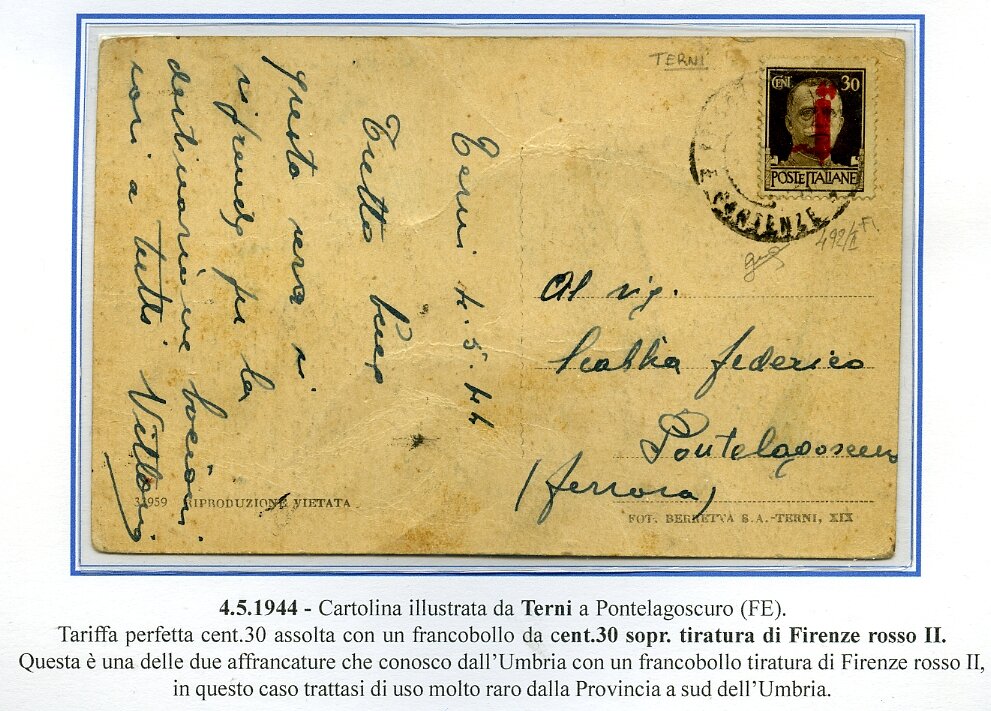 TERNI
CENT 30
POSTE ITALIANE
PARTENZE
492/II FI
Terni 4.5.44
Tutto bene
questa sera si
riprende per la
destinazione bacioni
cari a tutti Vittorio
Al sig.
Scabbia federico
Pontelagoscuro
(ferrara)
34959 RIPRODUZIONE VIETATA
FOT. BERRETTA S.A.-TERNI, XIX
4.5.1944 - Cartolina illustrata da Terni a Pontelagoscuro (FE).
Tariffa perfetta cent.30 assolta con un francobollo da cent.30 sopr. tiratura di Firenze rosso II.
Questa è una delle due affrancature che conosco dall'Umbria con un francobollo tiratura di Firenze rosso II,
in questo caso trattasi di uso molto raro dalla Provincia a sud dell'Umbria.